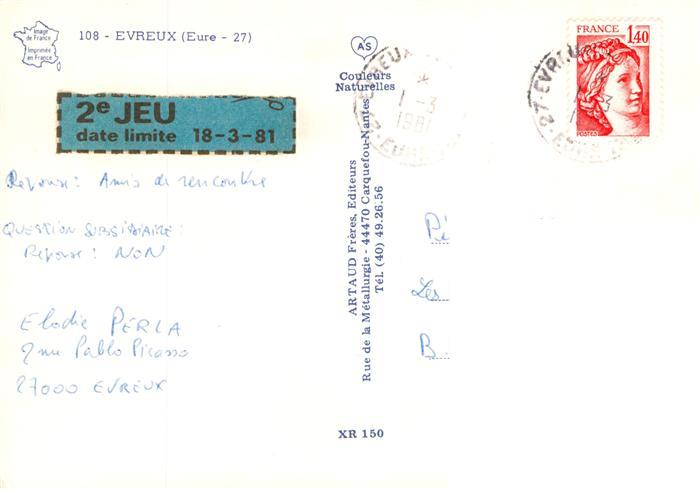 Image
de France
Imprimée
en France
108 - EVREUX (Eure - 27)
AS
Couleurs
Naturelles
2e JEU
date limite 18-3-81
Réponse: Amis de rencontre
QUESTION SUBSIDIAIRE:
Réponse: NON
Elodie PERLA
2 rue Pablo Picasso
27000 EVREUX
ARTAUD Frères, Editeurs
Rue de la Métallurgie - 44470 Carquefou-Nantes
Tél. (40) 49.26.56
XR 150
EVREUX
1-3
1981
27 EVR
FRANCE
1,40
POSTES
Les
B